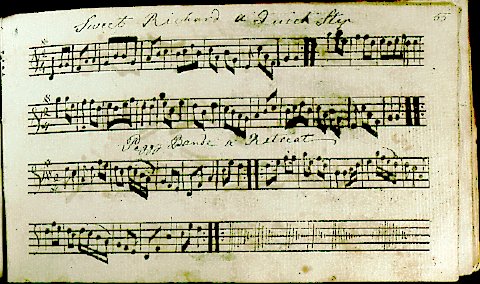 Sweet Richard a Quick Step
55
Peggy Bande a Retreat